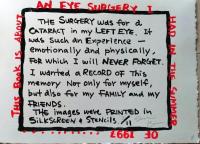 THIS BOOK IS ABOUT
AN EYE SURGERY I
HAD IN THE SUMMER
OF 1997.
THE SURGERY was for a
CATARACT in my LEFT EYE. IT
was Such an Experience —
emotionally and physically,
FOR which I will NEVER FORGET.
I wanted a RECORD OF THIS
memory Not only for myself,
but also for my FAMILY and my
FRIENDS.
THE images were PRINTED in
SILKSCREEN & STENCILS.